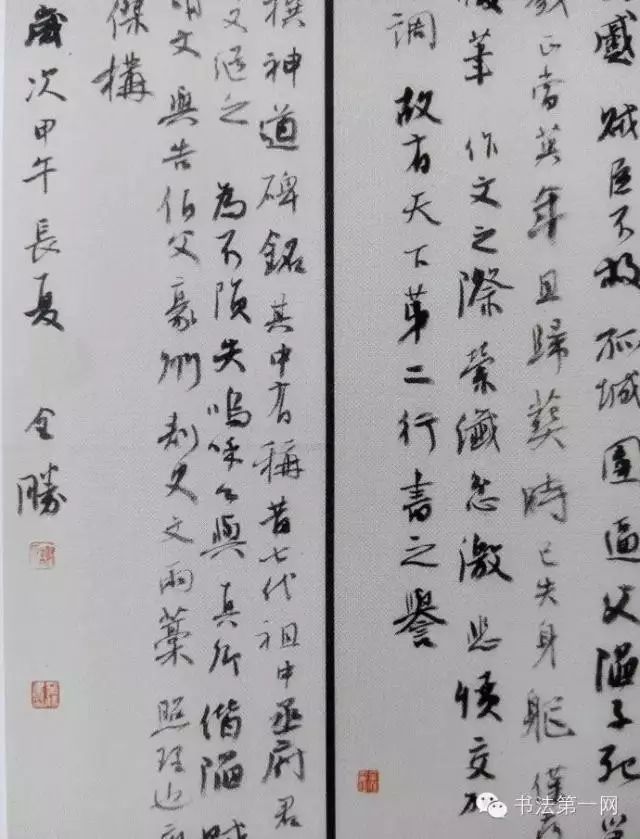 戚 贼臣不救 孤城圍逼 父陷子死
歲 正當英年 且歸葬時已失身軀 僅
筆 作文之際 縈纖忿激 悲憤交加
調 故有天下第二行書之譽
撰神道碑銘 其中有稱昔七代祖中丞府君
文
為不隕失 嗚呼 與真卿偕陷賊
明文 與告伯父豪州刺史文兩藁
傑構
歲次甲午長夏 全勝
书法第一网